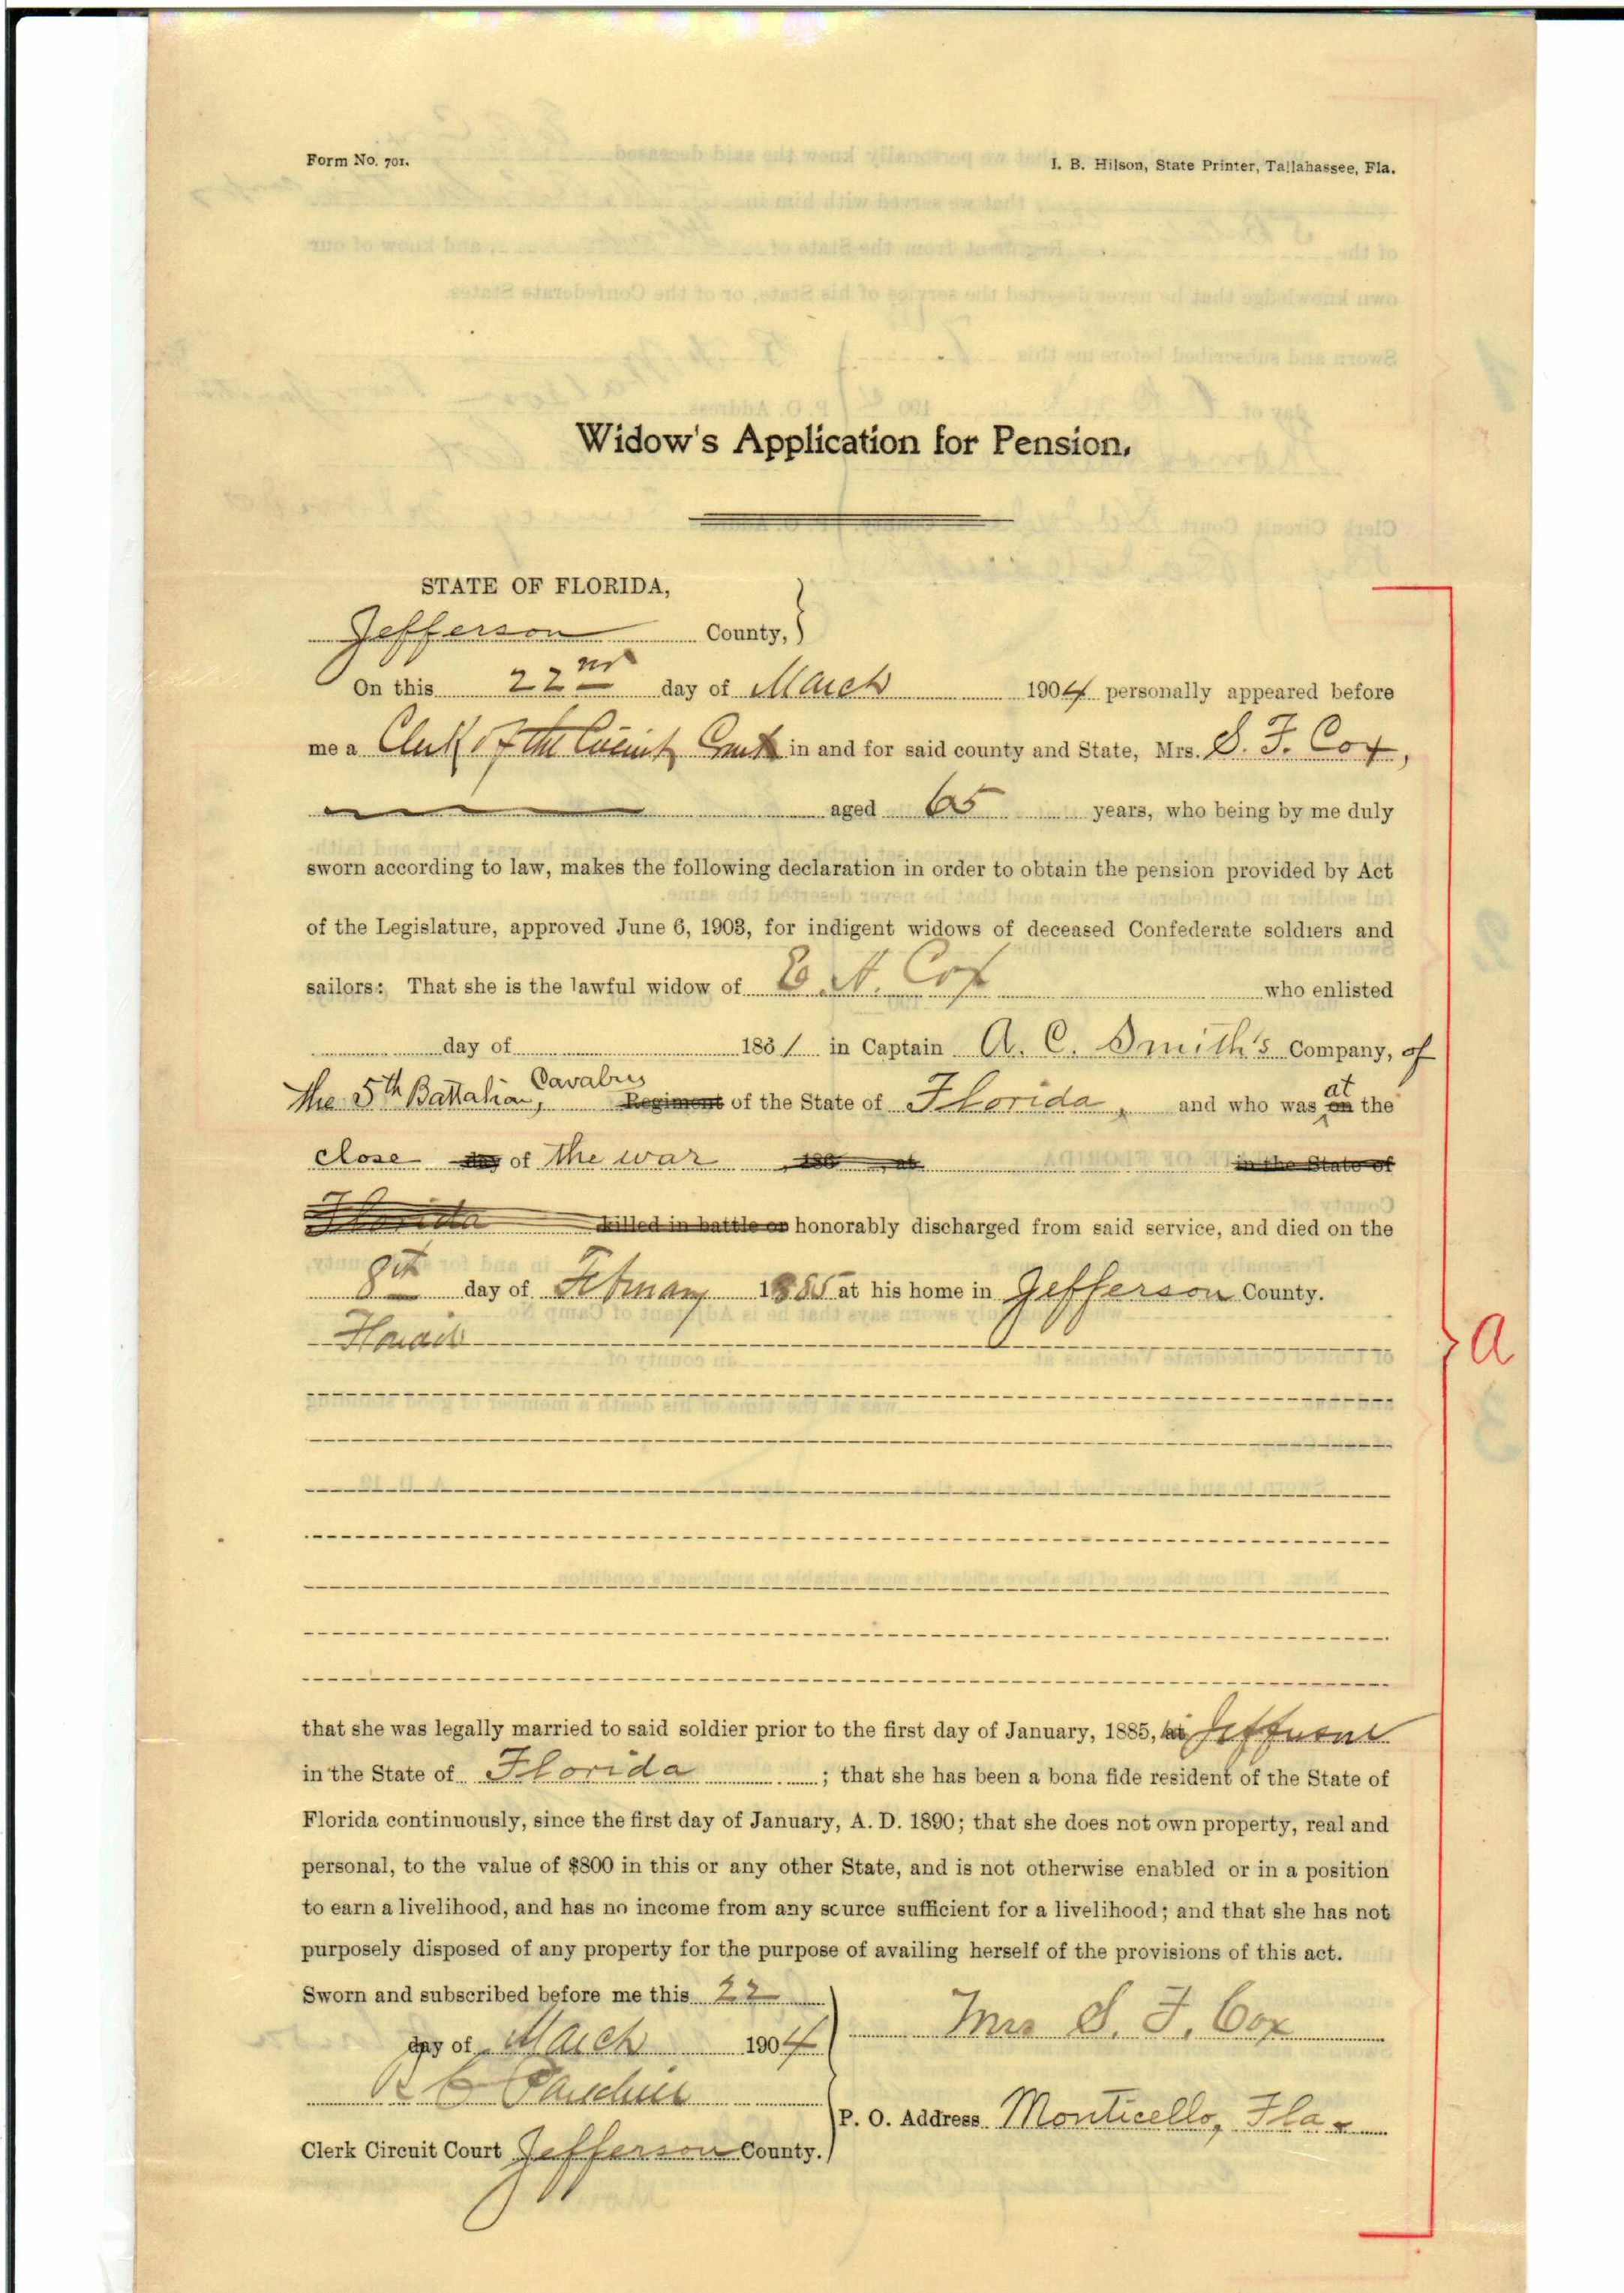 Form No. 701.
I. B. Hilson, State Printer, Tallahassee, Fla.
Widow's Application for Pension.
STATE OF FLORIDA,
Jefferson County,
On this 22nd day of March 1904 personally appeared before
me a Clerk of the Circuit Court in and for said county and State, Mrs. S. F. Cox,
aged 65 years, who being by me duly
sworn according to law, makes the following declaration in order to obtain the pension provided by Act
of the Legislature, approved June 6, 1903, for indigent widows of deceased Confederate soldiers and
sailors: That she is the lawful widow of E. A. Cox who enlisted
day of 1861 in Captain A. C. Smith's Company, of
the 5th Battalion, Cavalry Regiment of the State of Florida, and who was on at the
close day of the war, 186 , at in the State of
Florida killed in battle or honorably discharged from said service, and died on the
8th day of February 1885 at his home in Jefferson County.
Florida
A
that she was legally married to said soldier prior to the first day of January, 1885, in Jefferson
in the State of Florida ; that she has been a bona fide resident of the State of
Florida continuously, since the first day of January, A. D. 1890; that she does not own property, real and
personal, to the value of $800 in this or any other State, and is not otherwise enabled or in a position
to earn a livelihood, and has no income from any source sufficient for a livelihood; and that she has not
purposely disposed of any property for the purpose of availing herself of the provisions of this act.
Sworn and subscribed before me this 22
day of March 1904
Mrs S. F. Cox
P. O. Address Monticello, Fla.
Clerk Circuit Court Jefferson County.